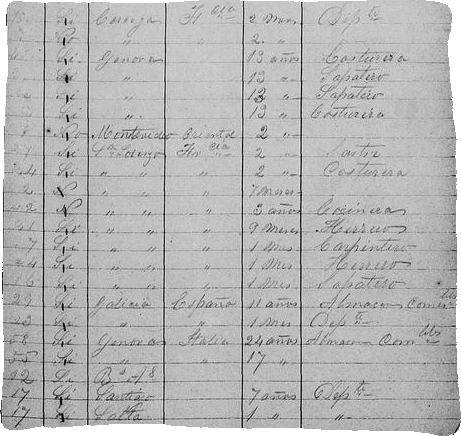 15 Si Coruega Fr cia 2 Mes Dep te
Si " " 2 "
Si Genova 13 años Costurera
Si " 13 " Sapatero
Si " 13 " Sapatero
Si " 13 " Costurera
No Montevideo Oriental 2 "
Si Sn Lorenzo Fr cia 2 " Sastre
24 Si " " " 2 " Costurera
2 N " " " 7 meses
22 N " " " 3 años Cocinera
Si " " " 9 Meses Herrero
Si " " " 1 Mes Carpintero
24 Si " " " 1 Mes Herrero
Si " " " 1 Mes Sapatero
29 Si Galicia España 11 años Almacen Comes tibs
23 Si " " 1 Mes Dep te
58 Si Genova Italia 24 años Almacen Com tibs
55 Si " " 17 "
92 Si Bs As
17 Si Santiago 7 años Dep te
17 Si Salta 1 " "